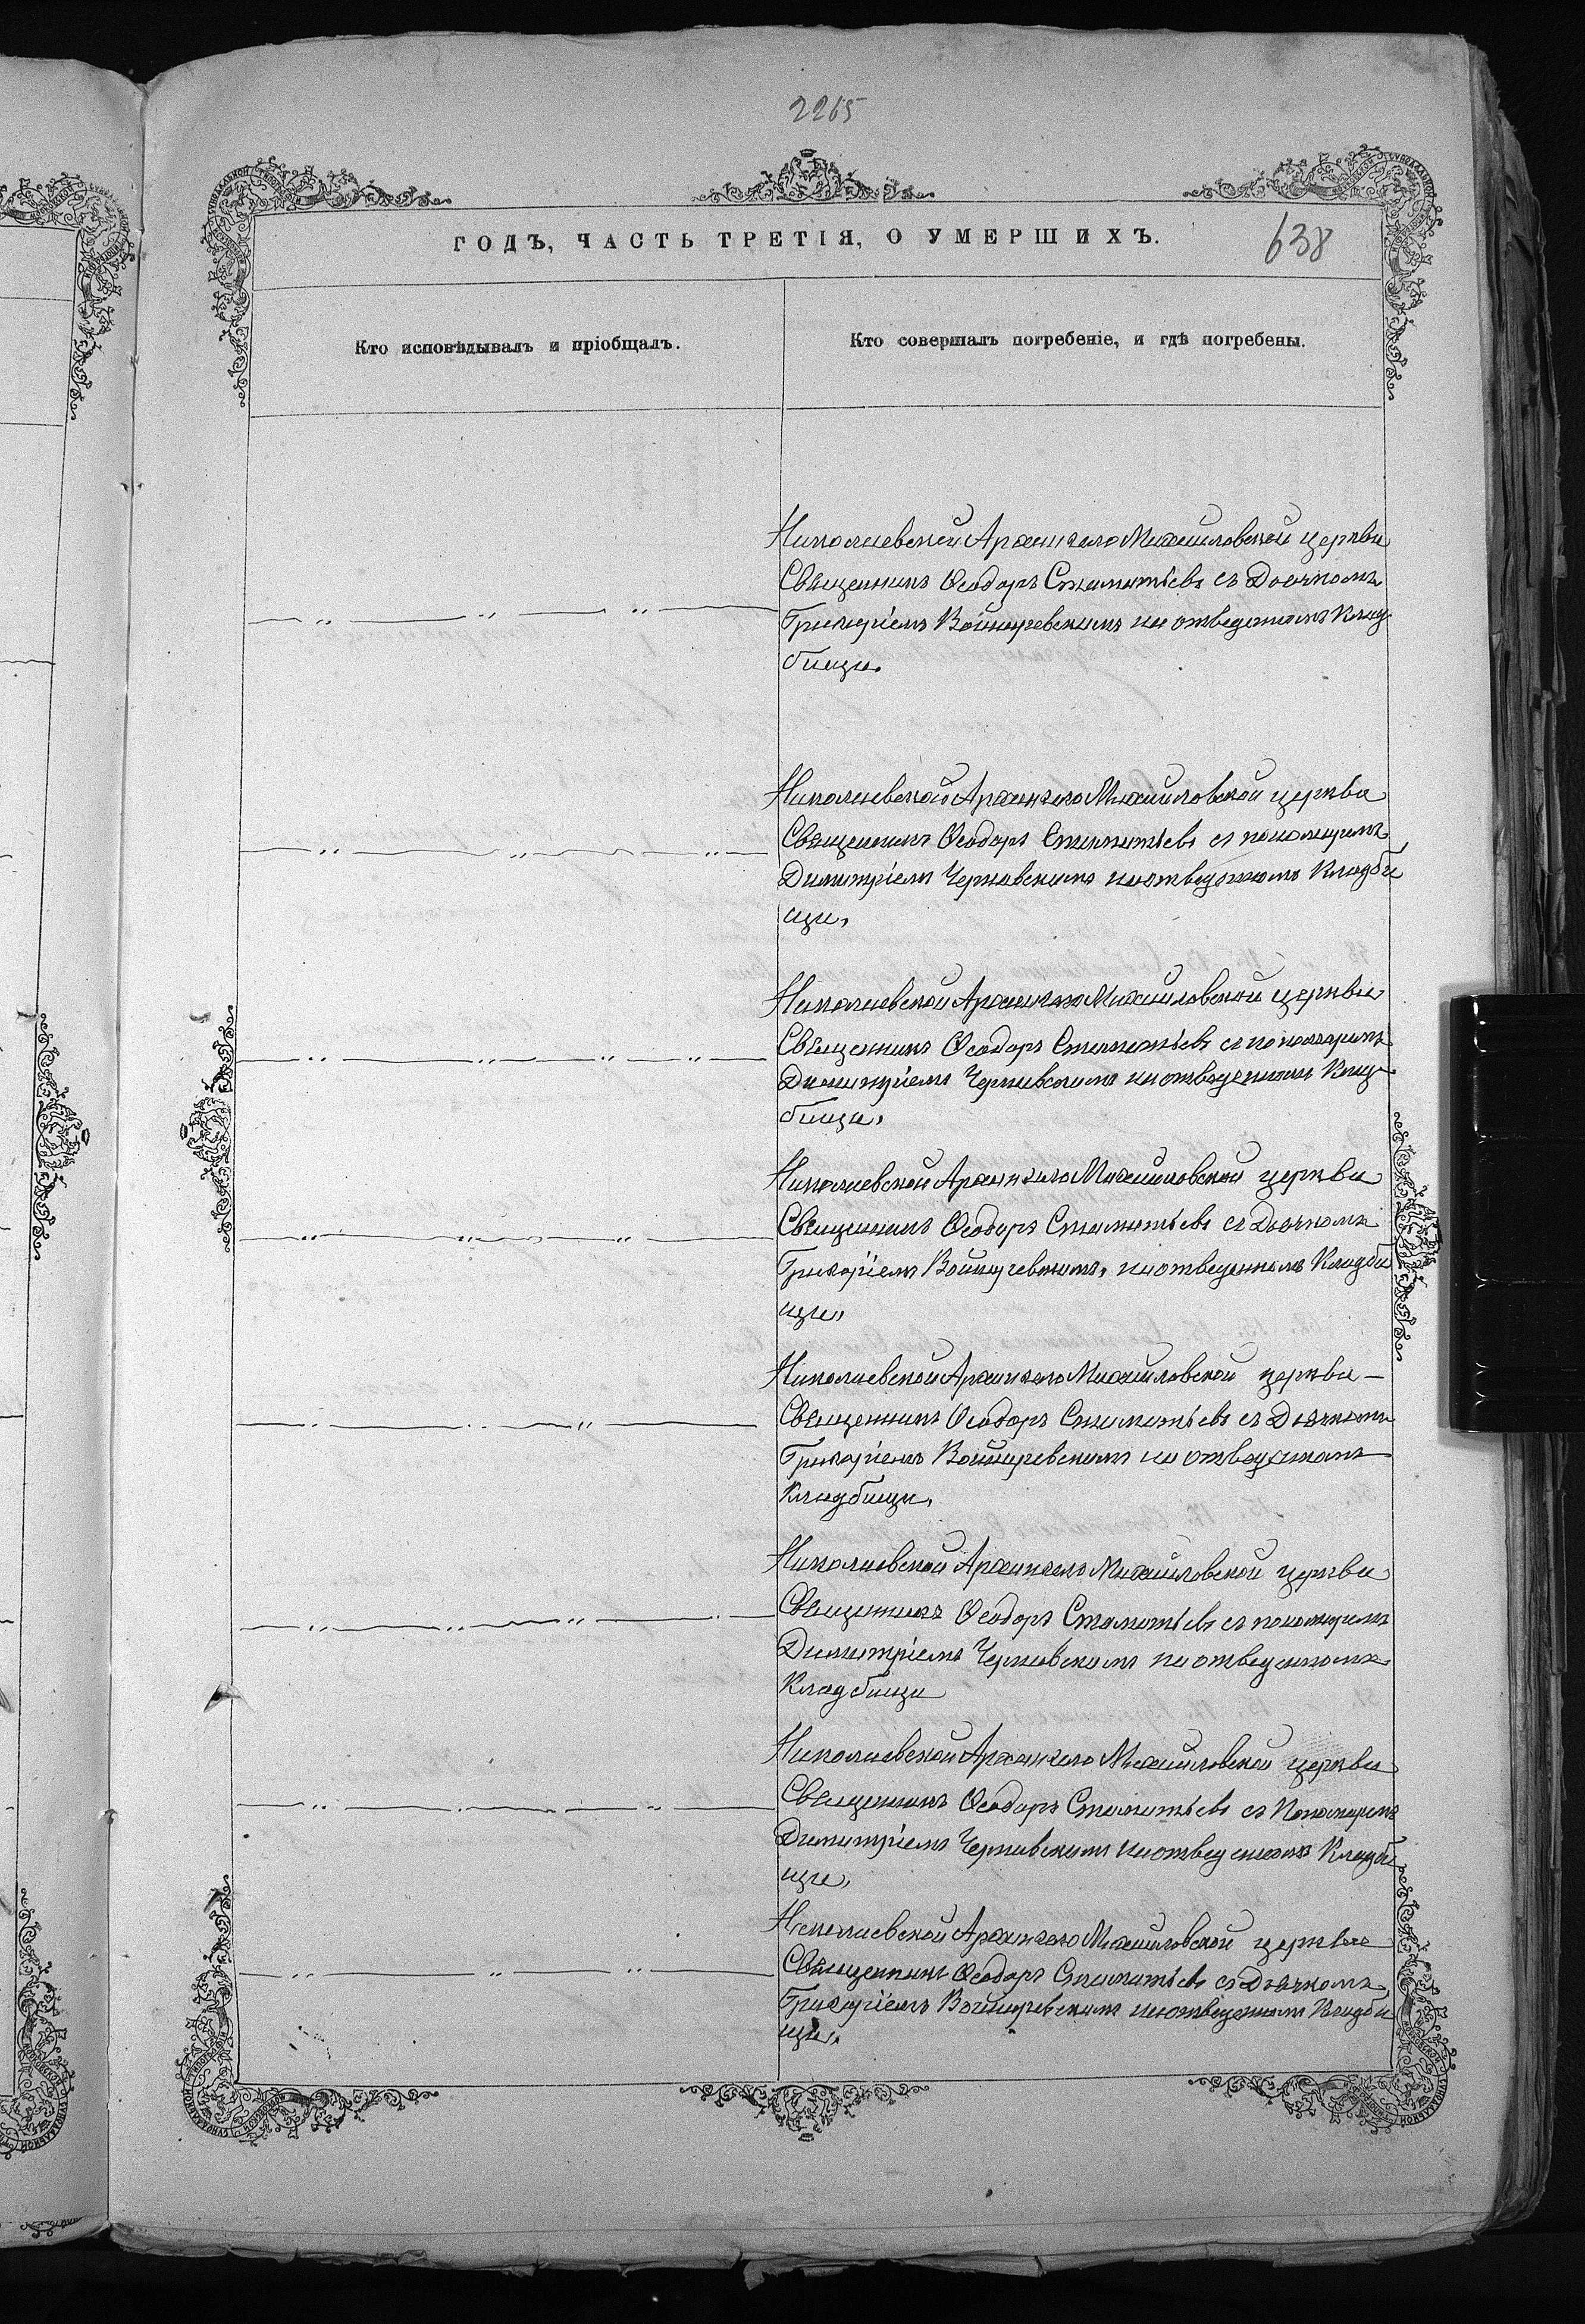 2265
ГОДЪ, ЧАСТЬ ТРЕТІЯ, О УМЕРШИХЪ.
638
Кто исповѣдывалъ и пріобщалъ.
Кто совершалъ погребеніе, и гдѣ погребены.
Николаевской Архангело Михаиловской церкви
Священникъ Ѳеодоръ Стаматіевъ съ Дьячкомъ
Григоріемъ Войнуческимъ на отведеномъ Клад
бищи.
Николаевской Архангело Михаиловской церкви
Священникъ Ѳеодоръ Стаматіевъ съ пономаремъ
Димитріемъ Чернавскимъ на отведеномъ Кладби
щи,
Николаевской Архангело Михаиловской церкви
Священникъ Ѳеодоръ Стаматіевъ съ пономаремъ
Димитріемъ Чернавскимъ на отведенномъ Клад
бищи,
Николаевской Архангело Михаиловской церкви
Священникъ Ѳеодоръ Стаматіевъ съ Дьячкомъ
Григоріемъ на отведенномъ Кладби
щи,
Николаевской Архангело Михаиловской церкви —
Священникъ Ѳеодоръ Стаматіевъ съ Дьячкомъ
Григоріемъ на отведенномъ
Кладбищи,
Николаевской Архангело Михаиловской церкви
Священникъ Ѳеодоръ Стаматіевъ съ пономаремъ
Димитріемъ Чернавскимъ на отведенномъ
Кладбищи
Николаевской Архангело Михаиловской церкви
Священникъ Ѳеодоръ Стаматіевъ съ Пономаремъ
Димитріемъ Чернавскимъ на отведеномъ Кладби
щи,
Николаевской Архангело Михаиловской церкви
Священникъ Ѳеодоръ Стаматіевъ съ Дьячкомъ
Григоріемъ на отведеномъ Кладби
щи.